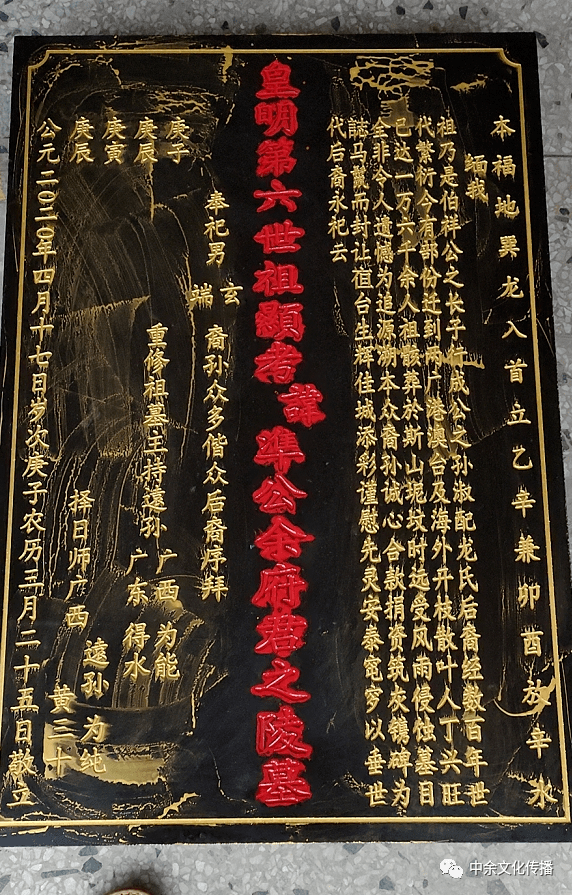 本福地巽龙入首立乙辛兼卯酉放辛水
缅我
祖乃是伯祥公之长子行成公之孙淑配龙氏后裔经数百年世
代繁衍今有部份迁到两广港澳台及海外开枝散叶人丁兴旺
已达一万六千余人祖骸葬於斯山坭坟时远受风雨侵蚀墓目
全非令人遗憾为追源溯本众裔孙诚心合款捐资筑灰镌碑为
志马鬣而封让徂台生辉佳城添彩谨慰先灵安泰窀穸以垂世
代后裔永祀云
皇明第六世祖顯考諱準公余府君之陵墓
奉祀男 玄端 裔孙众多偕众后裔焞拜
庚子
庚辰
庚寅
庚辰
重修祖墓主持遠孙 广西为能 广东得水
择日师广西 遠孙为纯 黄三十
公元二0二0年四月十七日岁次庚子农历三月二十五日敬立
中余文化传播